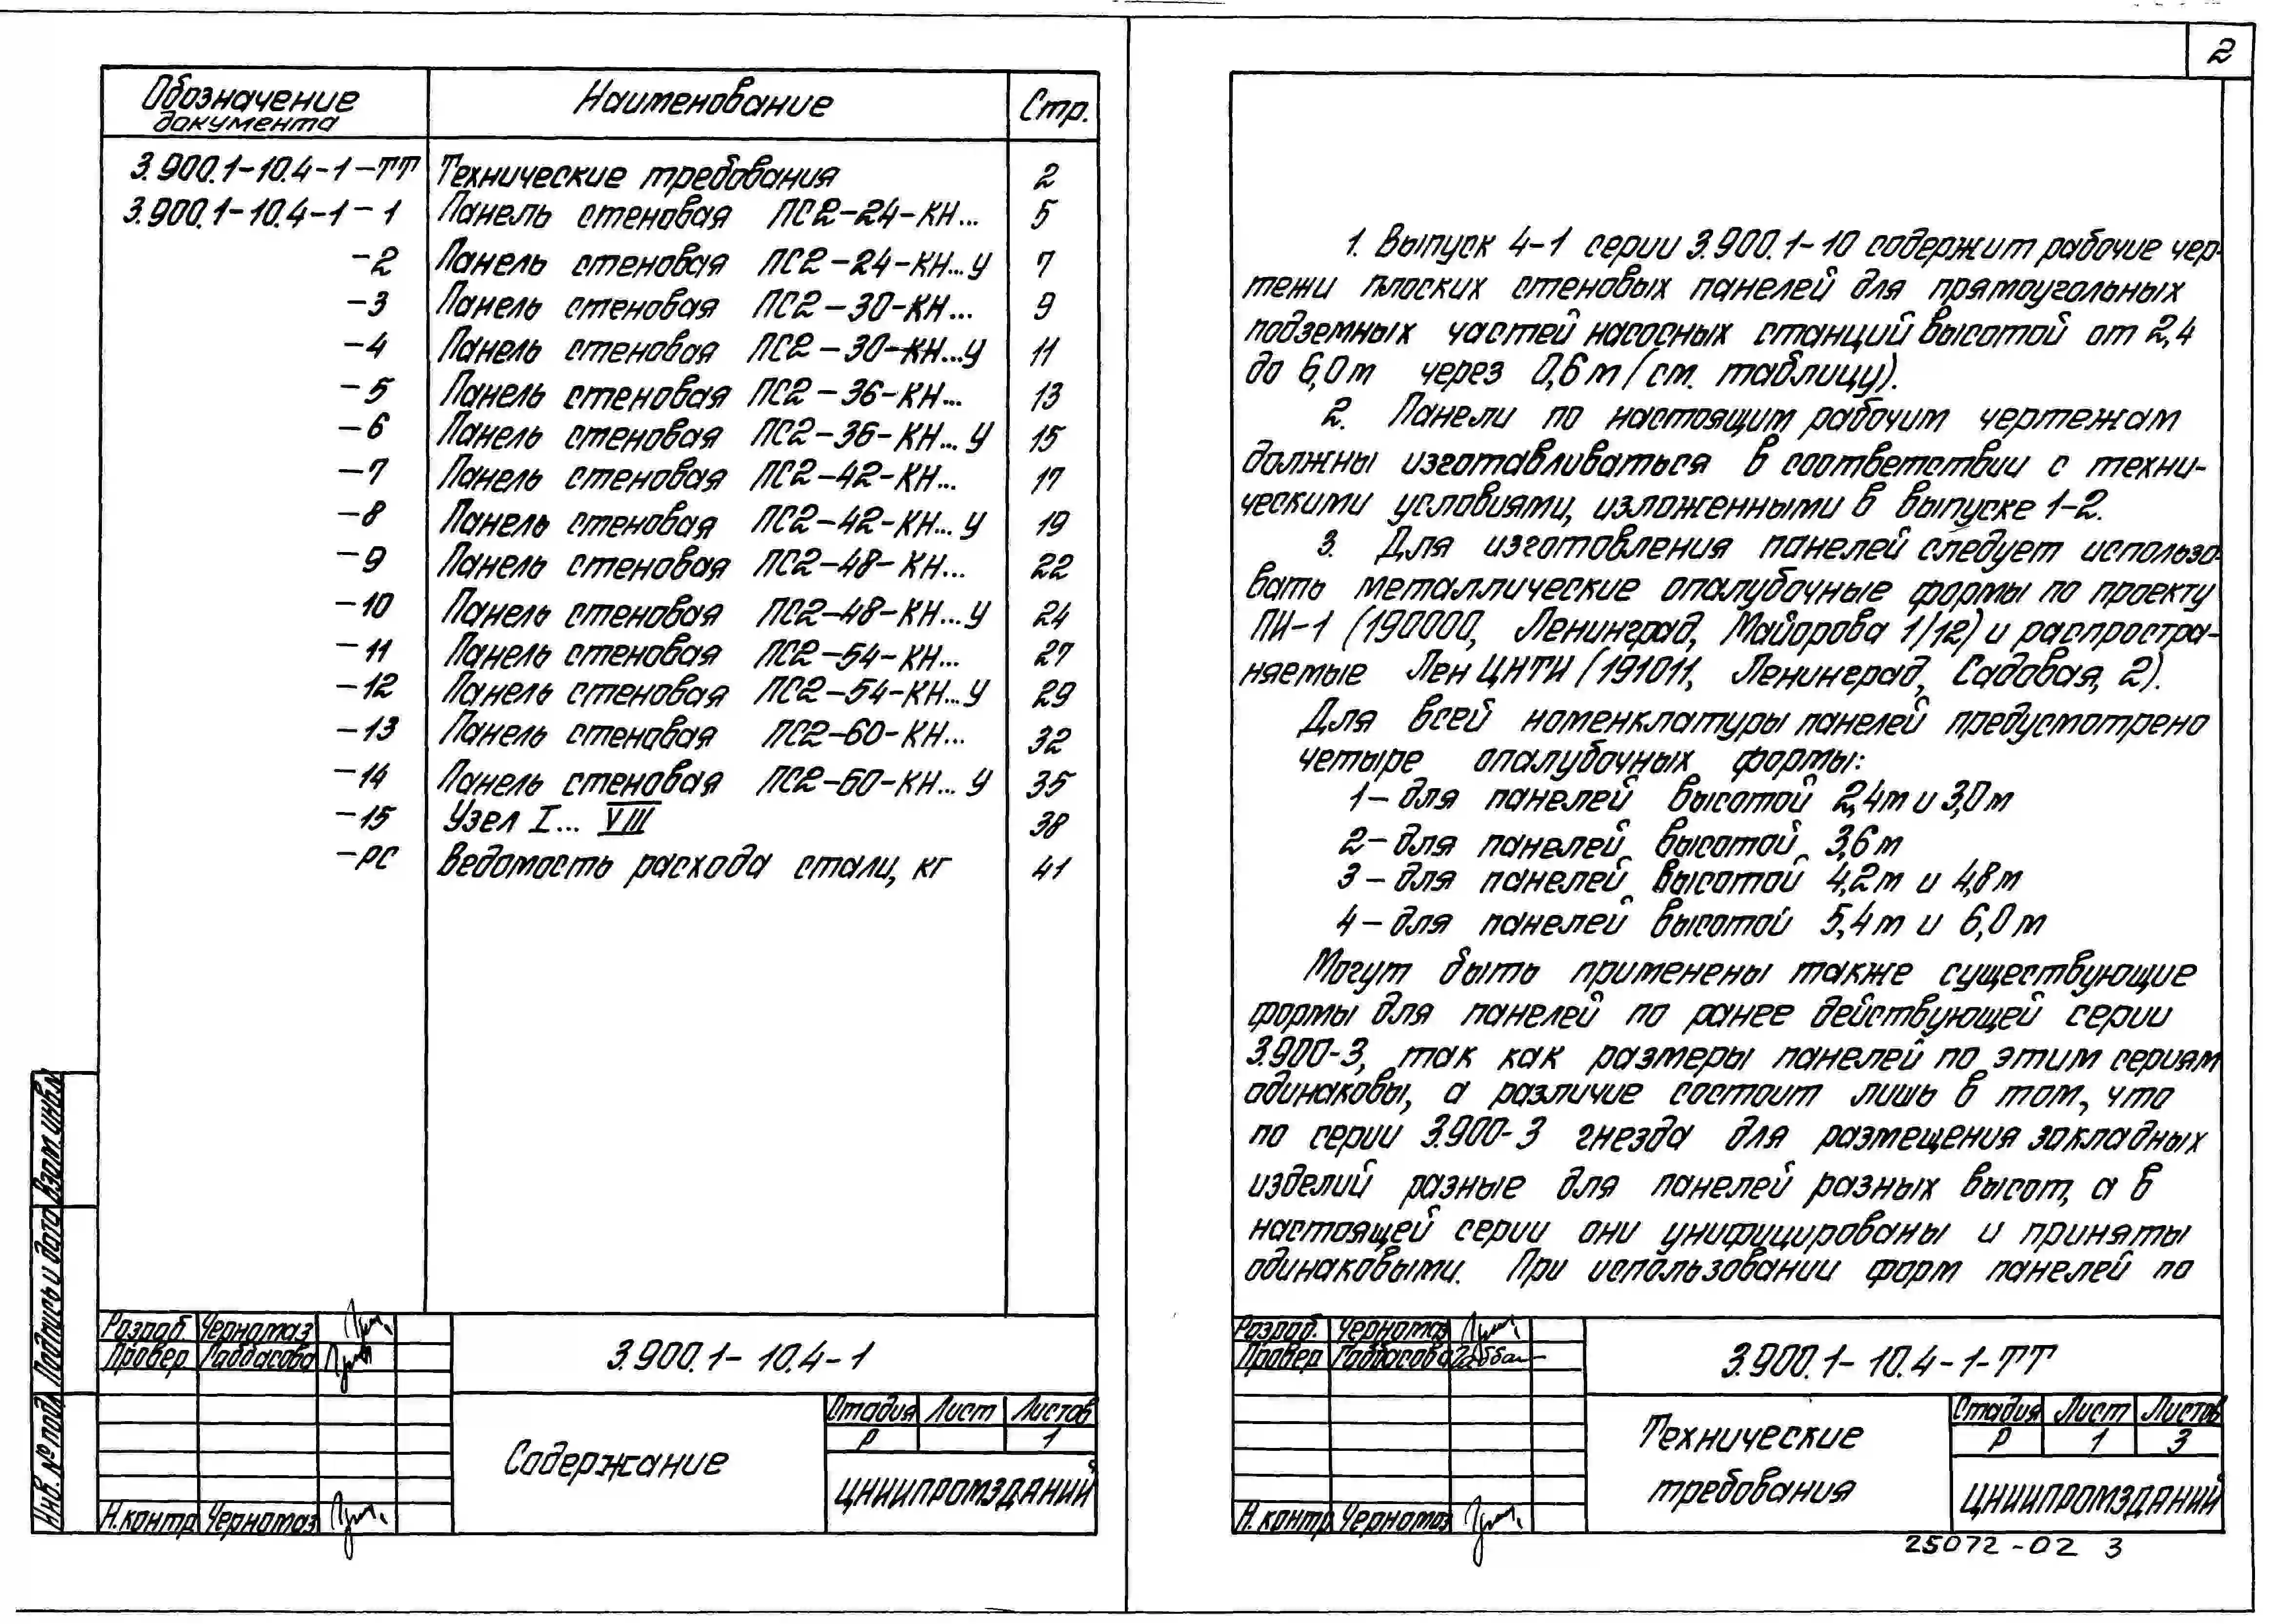 Обозначение документа Наименование Стр.
3.900.1-10.4-1-ТТ Технические требования 2
3.900.1-10.4-1-1 Панель стеновая ПС2-24-КН... 5
-2 Панель стеновая ПС2-24-КН...У 7
-3 Панель стеновая ПС2-30-КН... 9
-4 Панель стеновая ПС2-30-КН...У 11
-5 Панель стеновая ПС2-36-КН... 13
-6 Панель стеновая ПС2-36-КН...У 15
-7 Панель стеновая ПС2-42-КН... 17
-8 Панель стеновая ПС2-42-КН...У 19
-9 Панель стеновая ПС2-48-КН... 22
-10 Панель стеновая ПС2-48-КН...У 24
-11 Панель стеновая ПС2-54-КН... 27
-12 Панель стеновая ПС2-54-КН...У 29
-13 Панель стеновая ПС2-60-КН... 32
-14 Панель стеновая ПС2-60-КН...У 35
-15 Узел I... VIII 38
-РС Ведомость расхода стали, кг 41
Взам.инв.№
Подпись и дата
Инв.№ подл.
Разраб. Черномаз
Провер Габбасова
Н.контр Черномаз
3.900.1-10.4-1
Содержание
Стадия Лист Листов
Р 1
ЦНИИПРОМЗДАНИЙ
2
1. Выпуск 4-1 серии 3.900.1-10 содержит рабочие чер-
тежи плоских стеновых панелей для прямоугольных
подземных частей насосных станций высотой от 2,4
до 6,0м через 0,6м (см. таблицу).
2. Панели по настоящим рабочим чертежам
должны изготавливаться в соответствии с техни-
ческими условиями, изложенными в выпуске 1-2.
3. Для изготовления панелей следует использо-
вать металлические опалубочные формы по проекту
ПИ-1 (190000, Ленинград, Майорова 1/12) и распростра-
няемые ЛенЦНТИ (191011, Ленинград, Садовая, 2).
Для всей номенклатуры панелей предусмотрено
четыре опалубочных формы:
1-для панелей высотой 2,4м и 3,0м
2-для панелей высотой 3,6м
3-для панелей высотой 4,2м и 4,8м
4-для панелей высотой 5,4м и 6,0м
Могут быть применены также существующие
формы для панелей по ранее действующей серии
3.900-3, так как размеры панелей по этим сериям
одинаковы, а различие состоит лишь в том, что
по серии 3.900-3 гнезда для размещения закладных
изделий разные для панелей разных высот, а в
настоящей серии они унифицированы и приняты
одинаковыми. При использовании форм панелей по
Разраб. Черномаз
Провер Габбасова
Н.контр Черномаз
3.900.1-10.4-1-ТТ
Технические
требования
Стадия Лист Листов
Р 1 3
ЦНИИПРОМЗДАНИЙ
25072-02 3